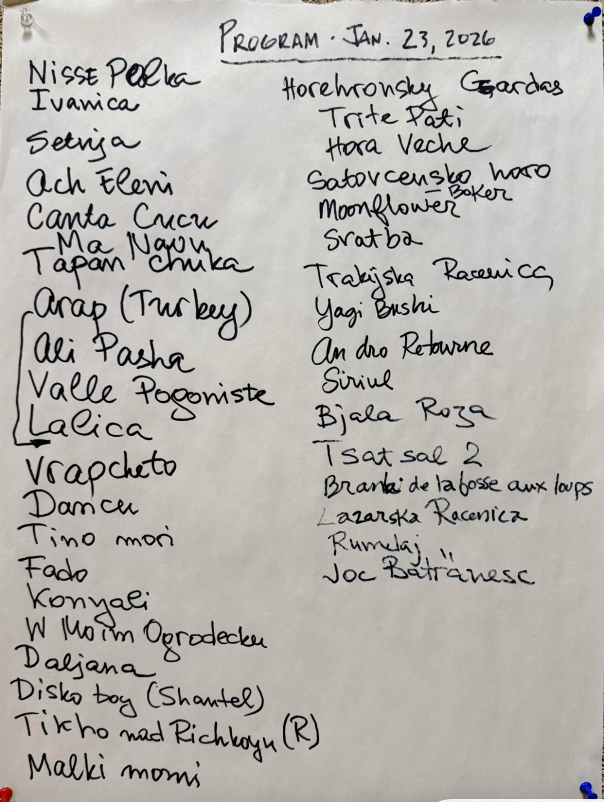 PROGRAM · JAN. 23, 2026
Nisse Polka
Ivanica
Setnja
Ach Eleni
Canta Cucu
Ma Ngon
Tapan Chuka
Arap (Turkey)
Ali Pasha
Valle Pogoniste
Lalica
Vrapcheto
Dancu
Tino mori
Fado
Konyali
W Moim Ogrodecku
Daljana
Disko boy (Shantel)
Tikho nad Richkoyu (R)
Malki momi
Horehronsky Csardas
Trite Pati
Hora Veche
Satovcensko horo
Moonflower - Boker
Svatba
Trakijska Racenica
Yagi Bushi
An dro Retourne
Siriul
Bjala Roza
Tsat sal 2
Branle de la fosse aux loups
Lazarska Racenica
Rumelaj
Joc Bătrânesc